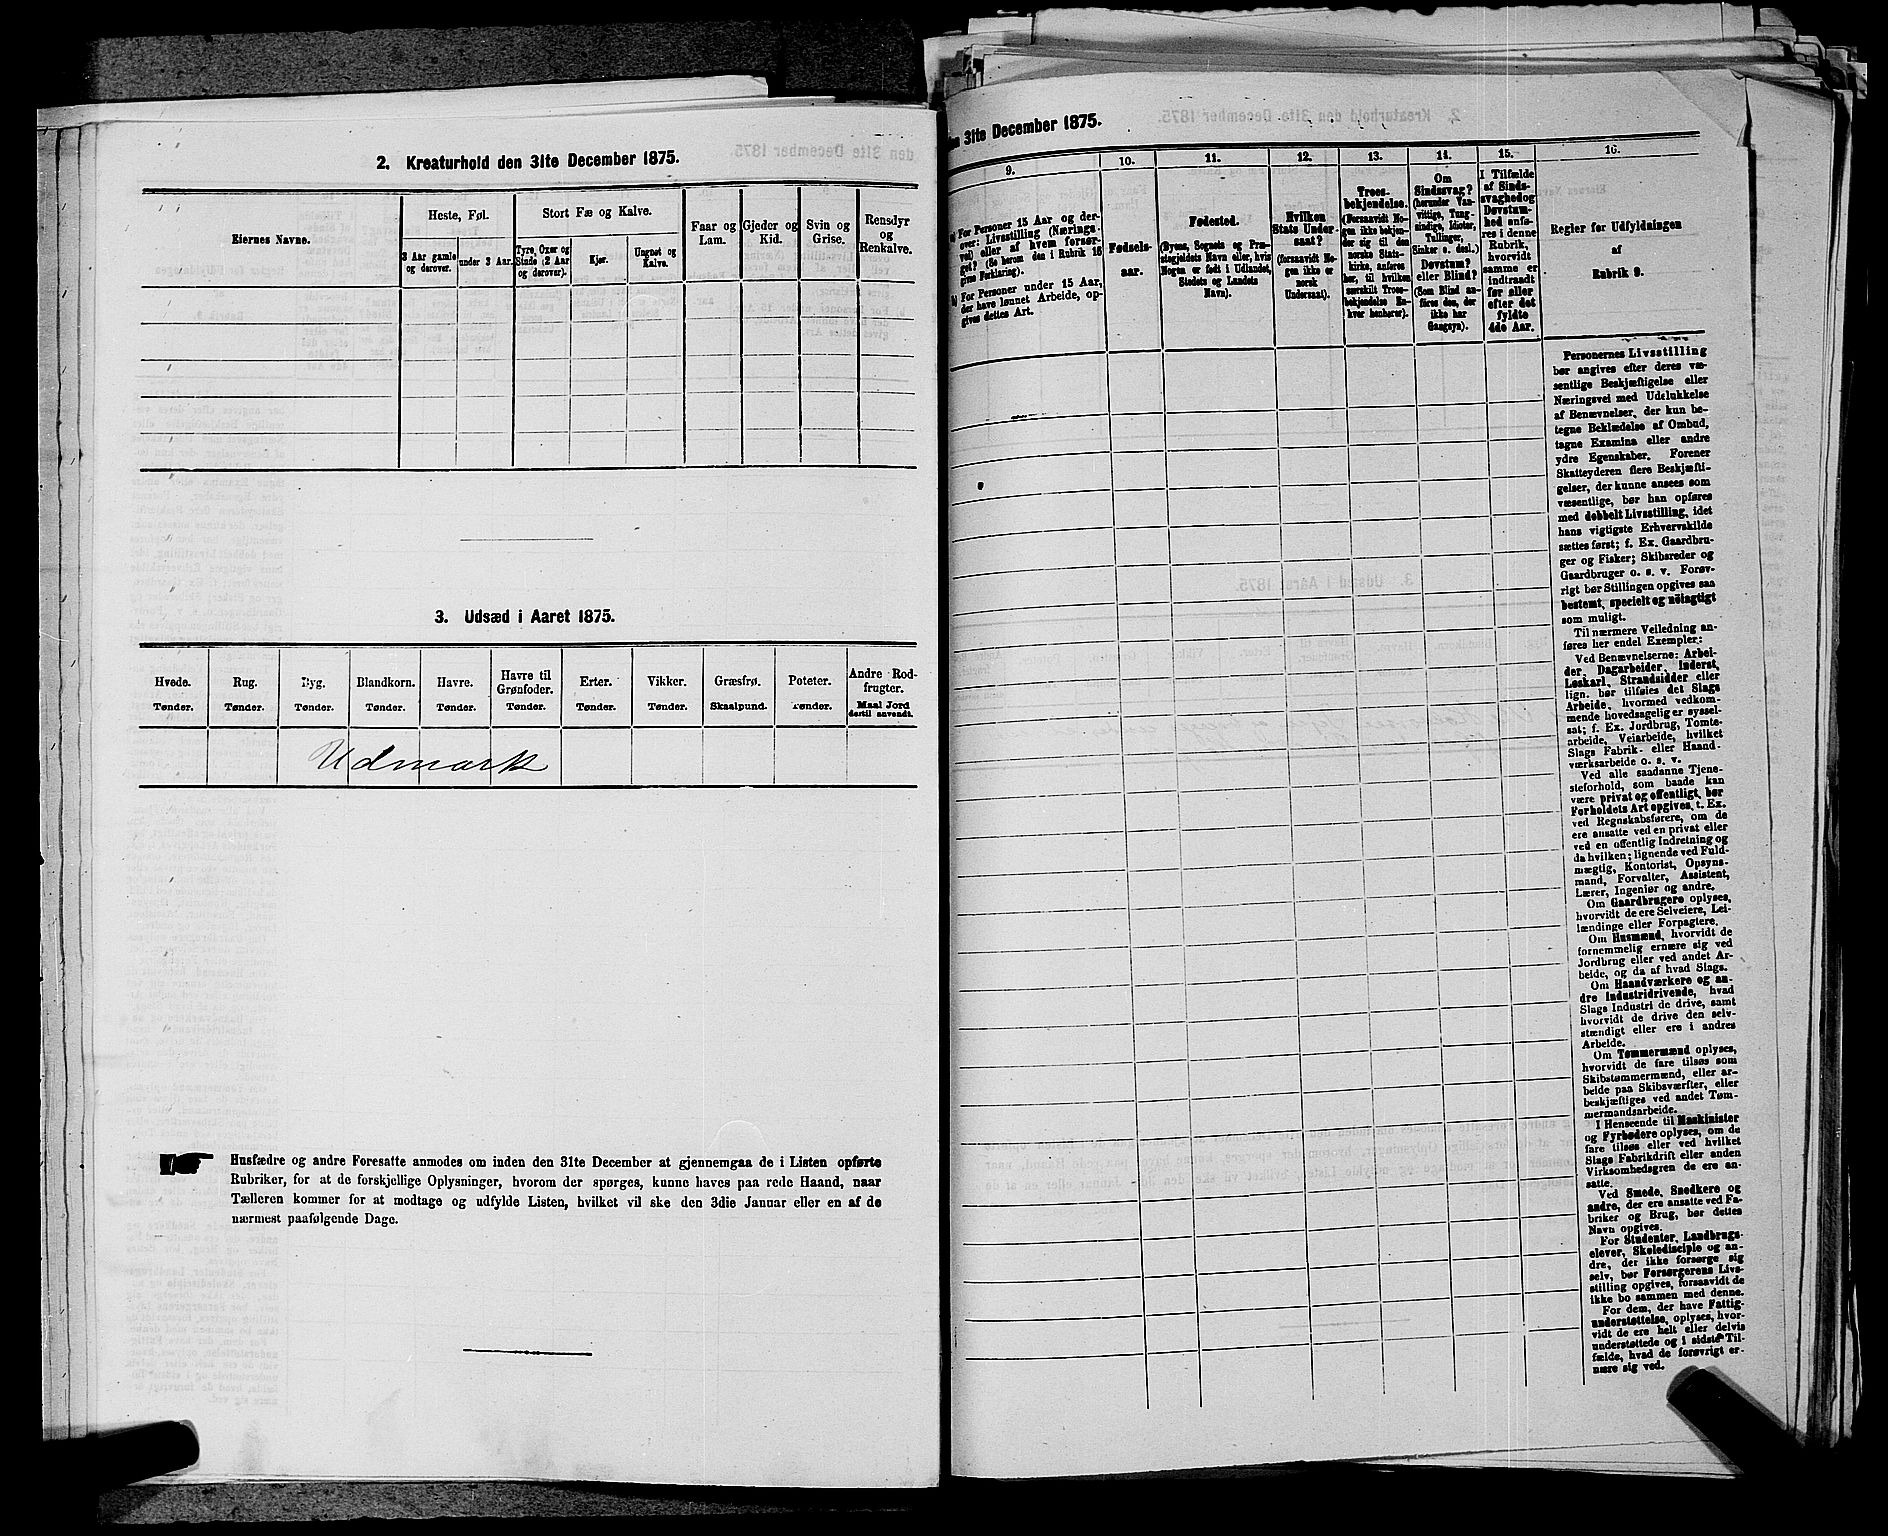 2. Kreaturhold den 31te December 1875.
Eiernes Navne.
Heste, Føl.
3 Aar gamle og derover.
under 3 Aar.
Stort Fæ og Kalve.
Tyre, Oxer og Stude (2 Aar og derover).
Kjør.
Ungnøt og Kalve.
Faar og Lam.
Gjeder og Kid.
Svin og Grise.
Rensdyr og Renkalve.
3. Udsæd i Aaret 1875.
Hvede. Rug. Byg. Blandkorn. Havre. Havre til Grønfoder. Erter. Vikker. Græsfrø. Poteter. Andre Rodfrugter.
Tønder. Tønder. Tønder. Tønder. Tønder. Tønder. Tønder. Tønder. Skaalpund. Tønder. Maal Jord dertil anvendt.
Udmark
Husfædre og andre Foresatte anmodes om inden den 31te December at gjennemgaa de i Listen opførte
Rubriker, for at de forskjellige Oplysninger, hvorom der spørges, kunne haves paa rede Haand, naar
Tælleren kommer for at modtage og udfylde Listen, hvilket vil ske den 3die Januar eller en af de
nærmest paafølgende Dage.
31te December 1875.
9.
a) For Personer 15 Aar og derover: Livsstilling (Næringsvei) eller af hvem forsørget? (Se herom den i Rubrik 16 givne Forklaring).
b) For Personer under 15 Aar, der have lønnet Arbeide, opgives dettes Art.
10.
Fødselsaar.
11.
Fødested.
(Byens, Sognets og Præstegjeldets Navn eller, hvis Nogen er født i Udlandet, Stedets og Landets Navn).
12.
Hvilken Stats Undersaat?
(forsaavidt Nogen ikke er norsk Undersaat).
13.
Troesbekjendelse.
(Forsaavidt Nogen ikke bekjender sig til den norske Statskirke, anføres her, til hvilken særskilt Troesbekjendelse Enhver henhører).
14.
Om Sindssvag?
(herunder Vanvittige, Tungsindige, Idioter, Tullinger, Sinker o. desl.)
Døvstum? eller Blind?
(Som Blind anføres den, der ikke har Gangsyn).
15.
I Tilfælde af Sindssvaghed og Døvstumhed anføres i denne Rubrik, hvorvidt samme er indtraadt før eller efter det fyldte 4de Aar.
16.
Regler for Udfyldningen
af
Rubrik 9.
Personernes Livsstilling
bør angives efter deres væ-
sentlige Beskjæftigelse eller
Næringsvei med Udelukkelse
af Benævnelser, der kun be-
tegne Beklædelse af Ombud,
tagne Examina eller andre
ydre Egenskaber. Forener
Skatteyderen flere Beskjæfti-
gelser, der kunne ansees som
væsentlige, bør han opføres
med dobbelt Livsstilling, idet
hans vigtigste Erhvervskilde
sættes først; f. Ex. Gaardbru-
ger og Fisker; Skibsreder og
Gaardbruger o. s. v. Forøv-
rigt bør Stillingen opgives saa
bestemt, specielt og nøiagtigt
som muligt.
Til nærmere Veiledning an-
føres her endel Exempler:
Ved Benævnelserne: Arbei-
der, Dagarbeider, Inderst,
Løskarl, Strandsidder eller
lign. bør tilføies det Slags
Arbeide, hvormed vedkom-
mende hovedsagelig er syssel-
sat; f. Ex. Jordbrug, Tomte-
arbeide, Veiarbeide, hvilket
Slags Fabrik- eller Haand-
værksarbeide o. s. v.
Ved alle saadanne Tjene-
steforhold, som baade kan
være privat og offentligt, bør
Forholdets Art opgives, t. Ex.
ved Regnskabsførere, om de
ere ansatte ved en privat eller
ved en offentlig Indretning og
da hvilken; lignende ved Fuld-
mægtig, Kontorist, Opsyns-
mand, Forvalter, Assistent,
Lærer, Ingeniør og andre.
Om Gaardbrugere oplyses,
hvorvidt de ere Selveiere, Lei-
lændinge eller Forpagtere.
Om Husmænd, hvorvidt de
fornemmelig ernære sig ved
Jordbrug eller ved andet Ar-
beide, og da af hvad Slags.
Om Haandværkere og an-
dre Industridrivende, hvad
Slags Industri de drive, samt
hvorvidt de drive den selv-
stændigt eller ere i andres
Arbeide.
Om Tømmermænd oplyses,
hvorvidt de fare tilsøs som
Skibstømmermænd, eller ar-
beide paa Skibsværfter, eller
beskjæftiges ved andet Tøm-
mermandsarbeide.
I Henseende til Maskinister
og Fyrbødere oplyses, om de
fare tilsøs eller ved hvilket
Slags Fabrikdrift eller anden
Virksomhedsgren de ere an-
satte.
Ved Smede, Snedkere og
andre, der ere ansatte ved Fa-
briker og Brug, bør dettes
Navn opgives.
For Studenter, Landbrugs-
elever, Skoledisciple og an-
dre, der ikke forsørge sig
selv, bør Forsørgerens Livs-
stilling opgives, forsaavidt de
ikke bo sammen med denne.
For dem, der have Fattig-
understøttelse, oplyses, hvor-
vidt de ere helt eller delvis
understøttede og i sidste Til-
fælde, hvad de forøvrigt er-
nære sig ved.